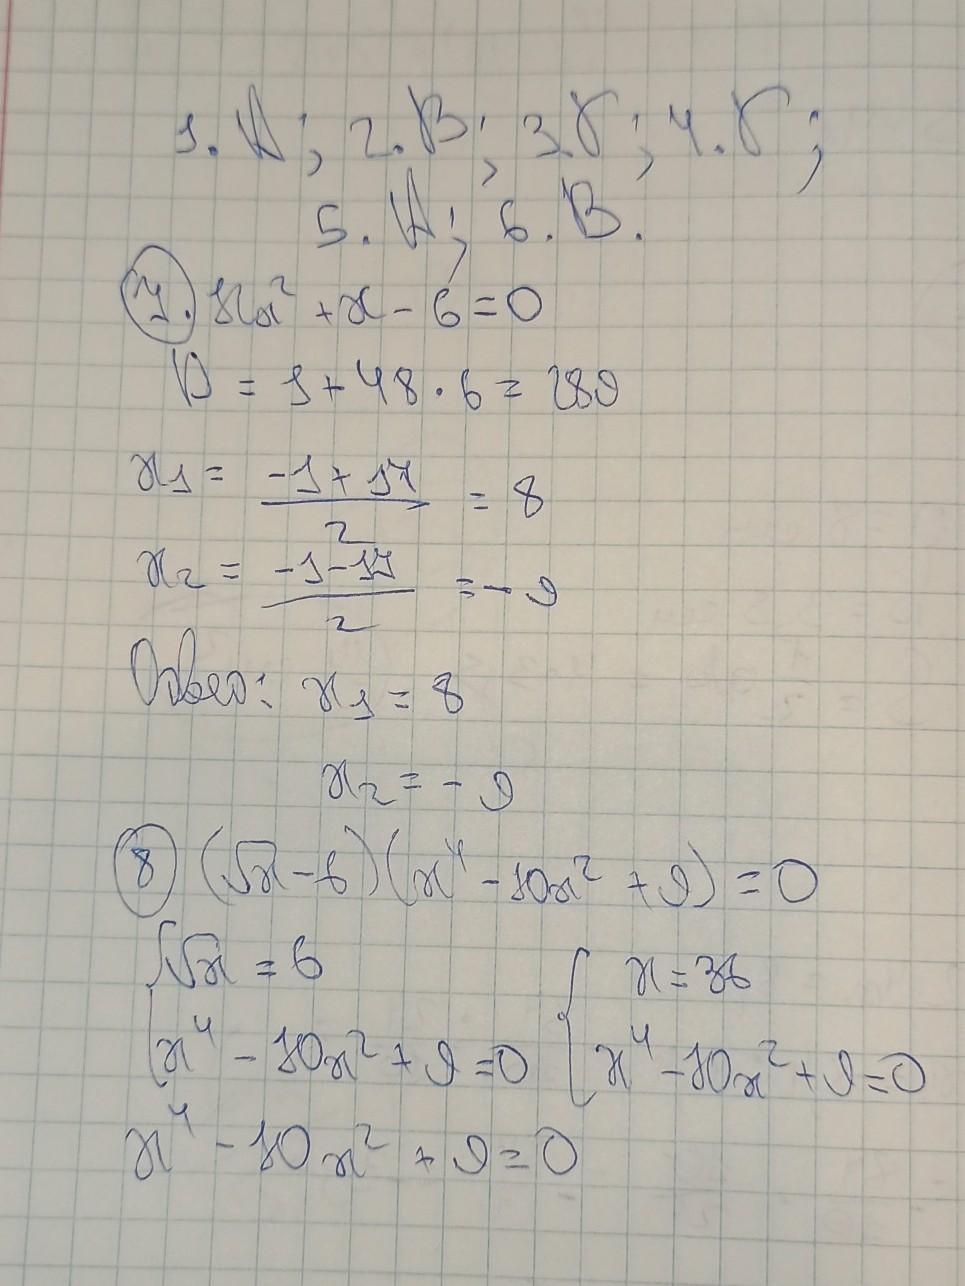 1. А; 2. В; 3. Г; 4. Г;
5. А; 6. В.
7. 12x² + x - 6 = 0
D = 1 + 48 · 6 = 289
x₁ = (-1 + 17)/2 = 8
x₂ = (-1 - 17)/2 = -9
Ответ: x₁ = 8
x₂ = -9
8 (√x - 6)(x⁴ - 10x² + 9) = 0
{ √x = 6 { x = 36
x⁴ - 10x² + 9 = 0 x⁴ - 10x² + 9 = 0
x⁴ - 10x² + 9 = 0